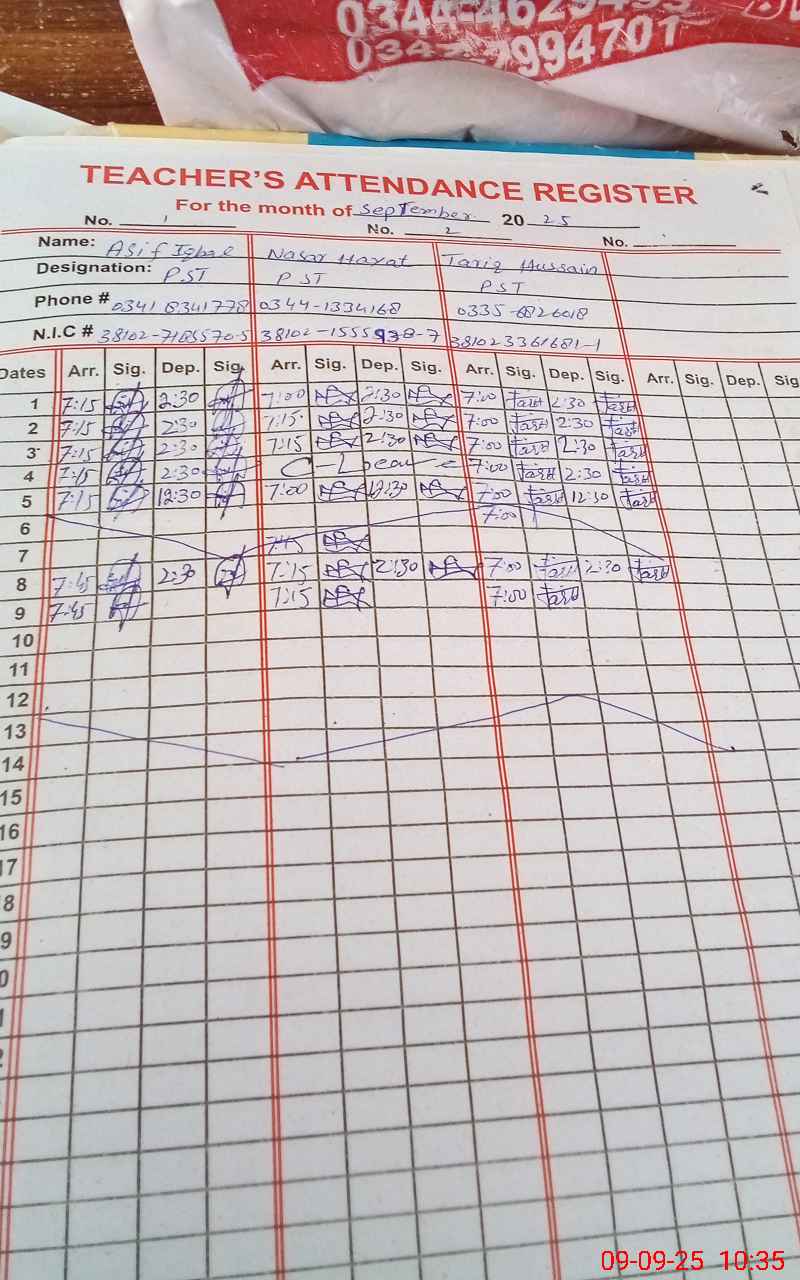 0344-4629493
0347-7994701
TEACHER'S ATTENDANCE REGISTER
For the month of September 2025
No. 1 No. 2 No.
Name: Asif Iqbal Nasar Hayat Tariq Hussain
Designation: PST PST PST
Phone # 0341 8341778 0344-1334168 0335-6826018
N.I.C # 38102-7185570-5 38102-1555938-7 381023361681-1
Dates Arr. Sig. Dep. Sig. Arr. Sig. Dep. Sig. Arr. Sig. Dep. Sig. Arr. Sig. Dep. Sig
1 7:15 2:30 7:00 2:30 7:00 Tariq 2:30 Tariq
2 7:15 2:30 7:15 2:30 7:00 Tariq 2:30 Tariq
3 7:15 2:30 7:15 2:30 7:00 Tariq 2:30 Tariq
4 7:15 2:30 C-Leave 7:00 Tariq 2:30 Tariq
5 7:15 12:30 7:00 12:30 7:00 Tariq 12:30 Tariq
6 7:00
7 7:45
8 7:45 2:30 7:15 2:30 7:00 Tariq 2:30 Tariq
9 7:45 7:15 7:00 Tariq
10
11
12
13
14
15
16
17
8
9
0
1
2
09-09-25 10:35